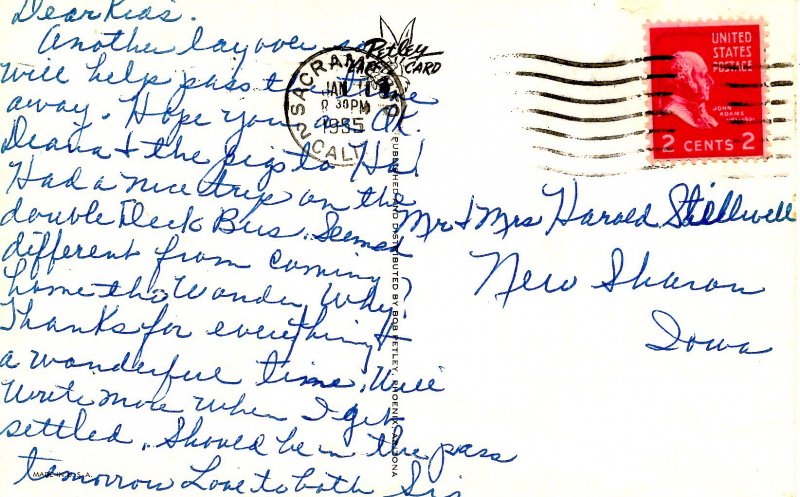 Dear Kids.
Another layover so
will help pass the time
away. Hope you are OK.
Deana & the pigs to Ha!
Had a nice trip on the
double Deck Bus. Seemed
different from coming
home tho Wonder Why?
Thanks for everything &
a wonderful time. Will
write more when I get
settled. Should be in the pass
tomorrow Love to both Sis
Petley
CARD
SACRAMENTO
JAN
8 30PM
1955
CALIF
2
PUBLISHED AND DISTRIBUTED BY BOB PETLEY, PHOENIX, ARIZONA
MADE IN U.S.A.
UNITED
STATES
POSTAGE
JOHN
ADAMS
2 CENTS 2
Mr & Mrs Harold Stillwell
New Sharon
Iowa